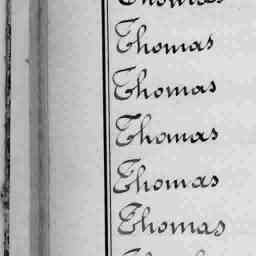 Thomas
Thomas
Thomas
Thomas
Thomas
Thomas